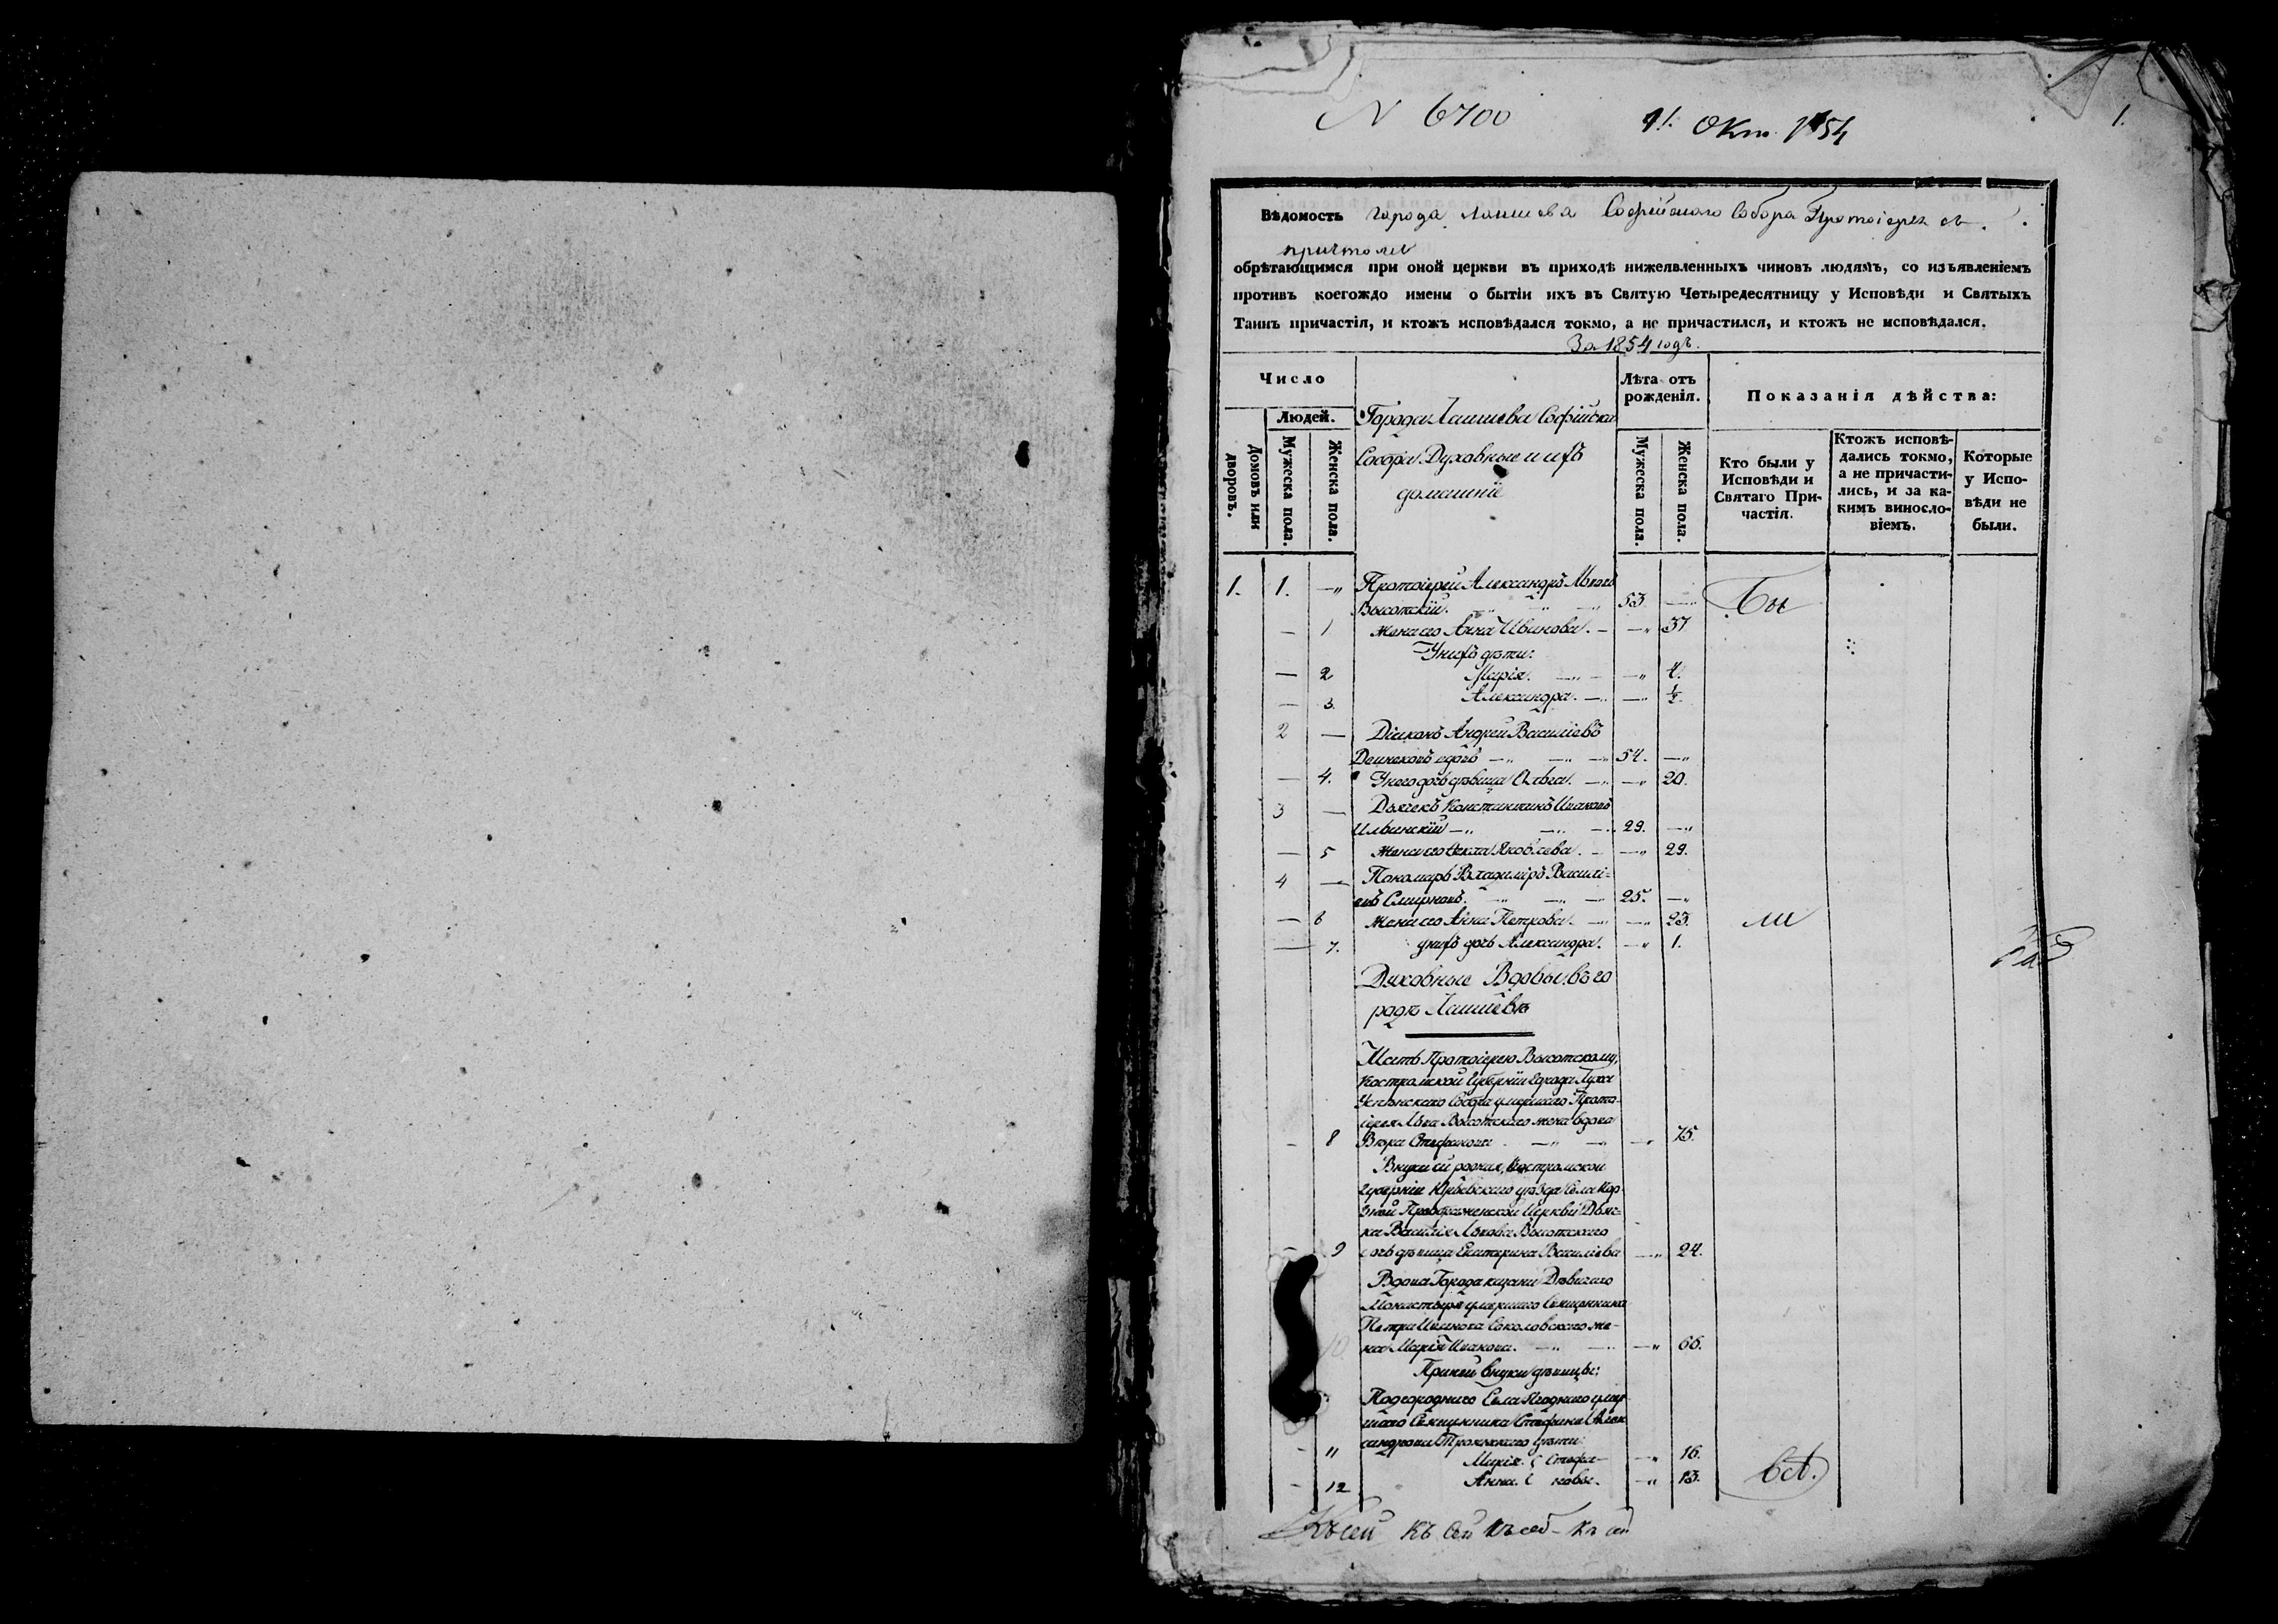 N 6700 11. Окт. 1854 1.
Вѣдомость города Лаишева Софійскаго Собора Протоіерея съ
причтомъ
обрѣтающимся при оной церкви въ приходѣ нижеявленныхъ чиновъ людямъ, со изъявленіемъ
противъ коегождо имени о бытіи ихъ въ Святую Четыредесятницу у Исповѣди и Святыхъ
Таинъ причастія, и ктожъ исповѣдался токмо, а не причастился, и ктожъ не исповѣдался.
За 1854 годъ.
Число
Людей.
Домовъ или дворовъ.
Мужеска пола.
Женска пола.
Города Лаишева Софійска
Собора Духовные и ихъ
домашніе
Лѣта отъ рожденія.
Мужеска пола.
Женска пола.
Показанія дѣйства:
Кто были у
Исповѣди и
Святаго При-
частія.
Ктожъ исповѣ-
дались токмо,
а не причасти-
лись, и за ка-
кимъ винословіемъ.
Которые
у Испо-
вѣди не
были.
1. 1. —„ Протоіерей Александръ Львовъ
Высотскій. 53. —„ Бы
— 1 Жена его Анна Иванова. — —„ 37
У нихъ дѣти:
— 2 Марія. —„ —„ 4.
— 3. Александра. —„ —„ ½.
2 — Діаконъ Андрей Василіевъ
вдовъ —„ —„ —„ 54. —„
— 4. У него дочь дѣвица Ольга. —„ —„ 20.
3 — Дьячекъ Константинъ Ивановъ
Ильинскій —„ —„ —„ 29. —„
— 5 Жена его Ѳекла Яковлева. — —„ 29.
4 — Пономарь Владиміръ Василі-
евъ Смирновъ. —„ —„ —„ 25. —„
— 6 Жена его Анна Петрова. —„ —„ 23. ли
— 7. у нихъ дочь Александра. —„ 1.
Духовные Вдовы въ го
родѣ Лаишевѣ
Мать Протоіерею Высотскому,
Костромской Губерніи города Луха
Успенскаго Собора умершаго Прото-
іерея Льва Высотскаго жена вдова
— 8 Вѣра Стефанова. —„ —„ —„ 75.
Внука ей родная, Костромской
Губерніи Юрьевскаго уѣзда Села Кор
Преображенской Церкви Дьяч-
ка Василія Львова Высотскаго
— 9 дочь дѣвица Екатерина Василіева —„ 24.
Вдова Города Казани Дѣвичаго
Монастыря умершаго Священника
Петра Иванова Соколовскаго же-
10 на Марія Иванова. —„ —„ —„ 66.
При ней внуки дѣвицы:
Подгороднаго Села Ягоднаго умер
шаго Священника Стефана Алек
сандрова Троицкаго дѣти:
— 11 Марія. Стефа- —„ 16.
— 12 Анна. новы. —„ 13. всѣ.
Къ сей къ сей къ сей къ сей